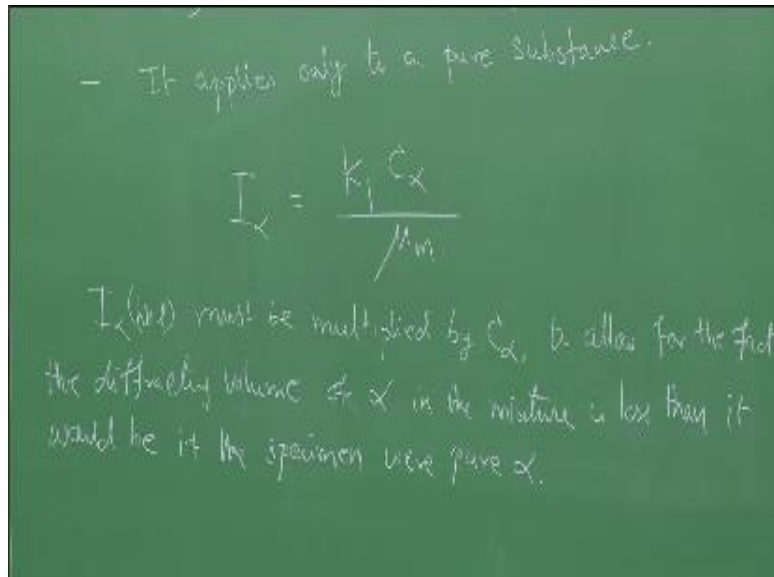 - It applies only to a pure substance.
I_α = K_1 C_α / μ_m
I_α(hkl) must be multiplied by C_α, to allow for the fact
the diffracting volume of α in the mixture is less than it
would be if the specimen were pure α.